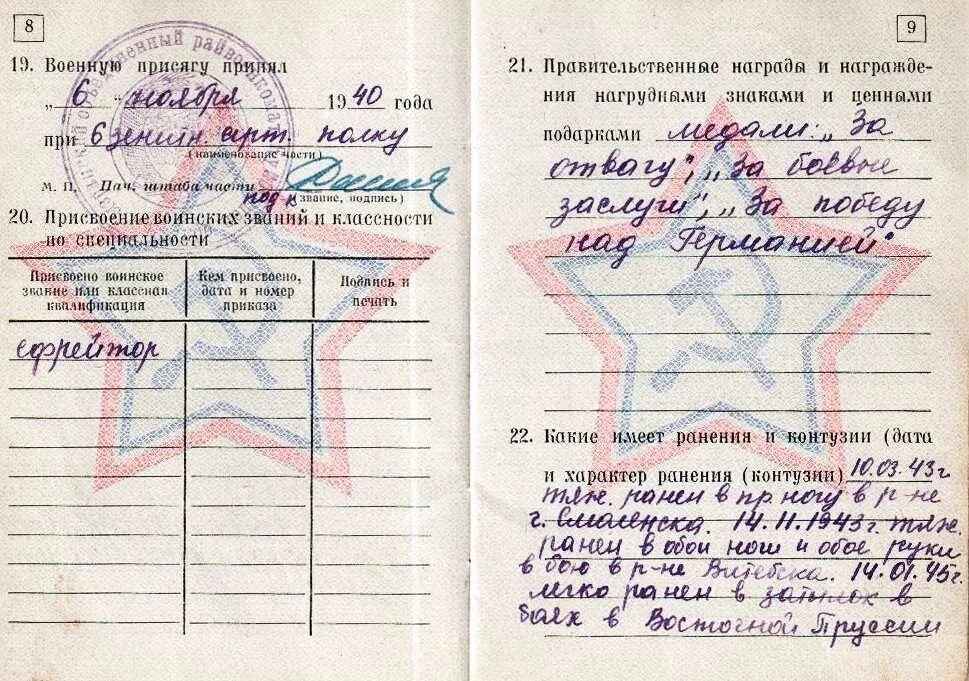 8
19. Военную присягу принял
„ 6 " ноября 1940 года
при 6 зенитн. арт. полку
(наименование части)
М. П. Нач. штаба части
подп-к (звание, подпись)
20. Присвоение воинских званий и классности
по специальности
Присвоено воинское звание или классная квалификация
Кем присвоено, дата и номер приказа
Подпись и печать
ефрейтор
9
21. Правительственные награды и награжде-
ния нагрудными знаками и ценными
подарками медали: „За
отвагу", „За боевые
заслуги", „За победу
над Германией"
22. Какие имеет ранения и контузии (дата
и характер ранения (контузии) 10.03.43г
тяж. ранен в пр. ногу в р-не
г. Смоленска. 14.11.1943г. тяж.
ранен в обои ноги и обое руки
в бою в р-не Витебска. 14.01.45г.
легко ранен в затылок в
боях в Восточной Пруссии